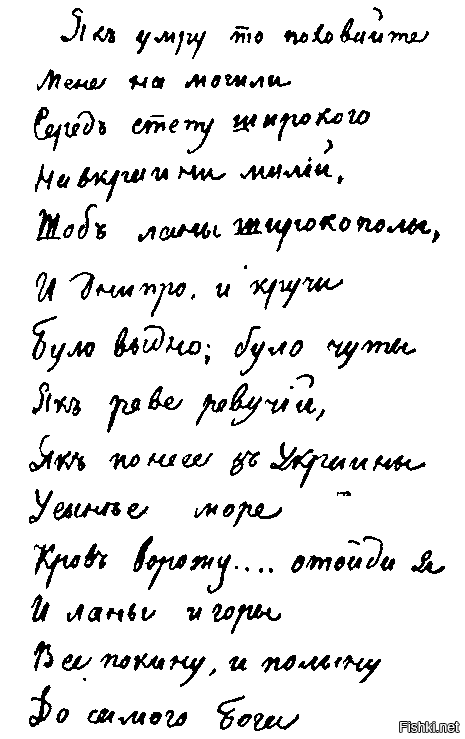 Якъ умру то поховайте
Мене на могили
Середъ степу широкого
На вкраини милій,
Щобъ ланы широкополы,
И Днипро, и кручи
Було выдно; було чуты
Якъ реве ревучій,
Якъ понесе зъ Украины
У сынѣе море
Кровъ ворожу.... отойди я
И ланы и горы
Все покину, и полыну
До самого Бога
Fishki.net